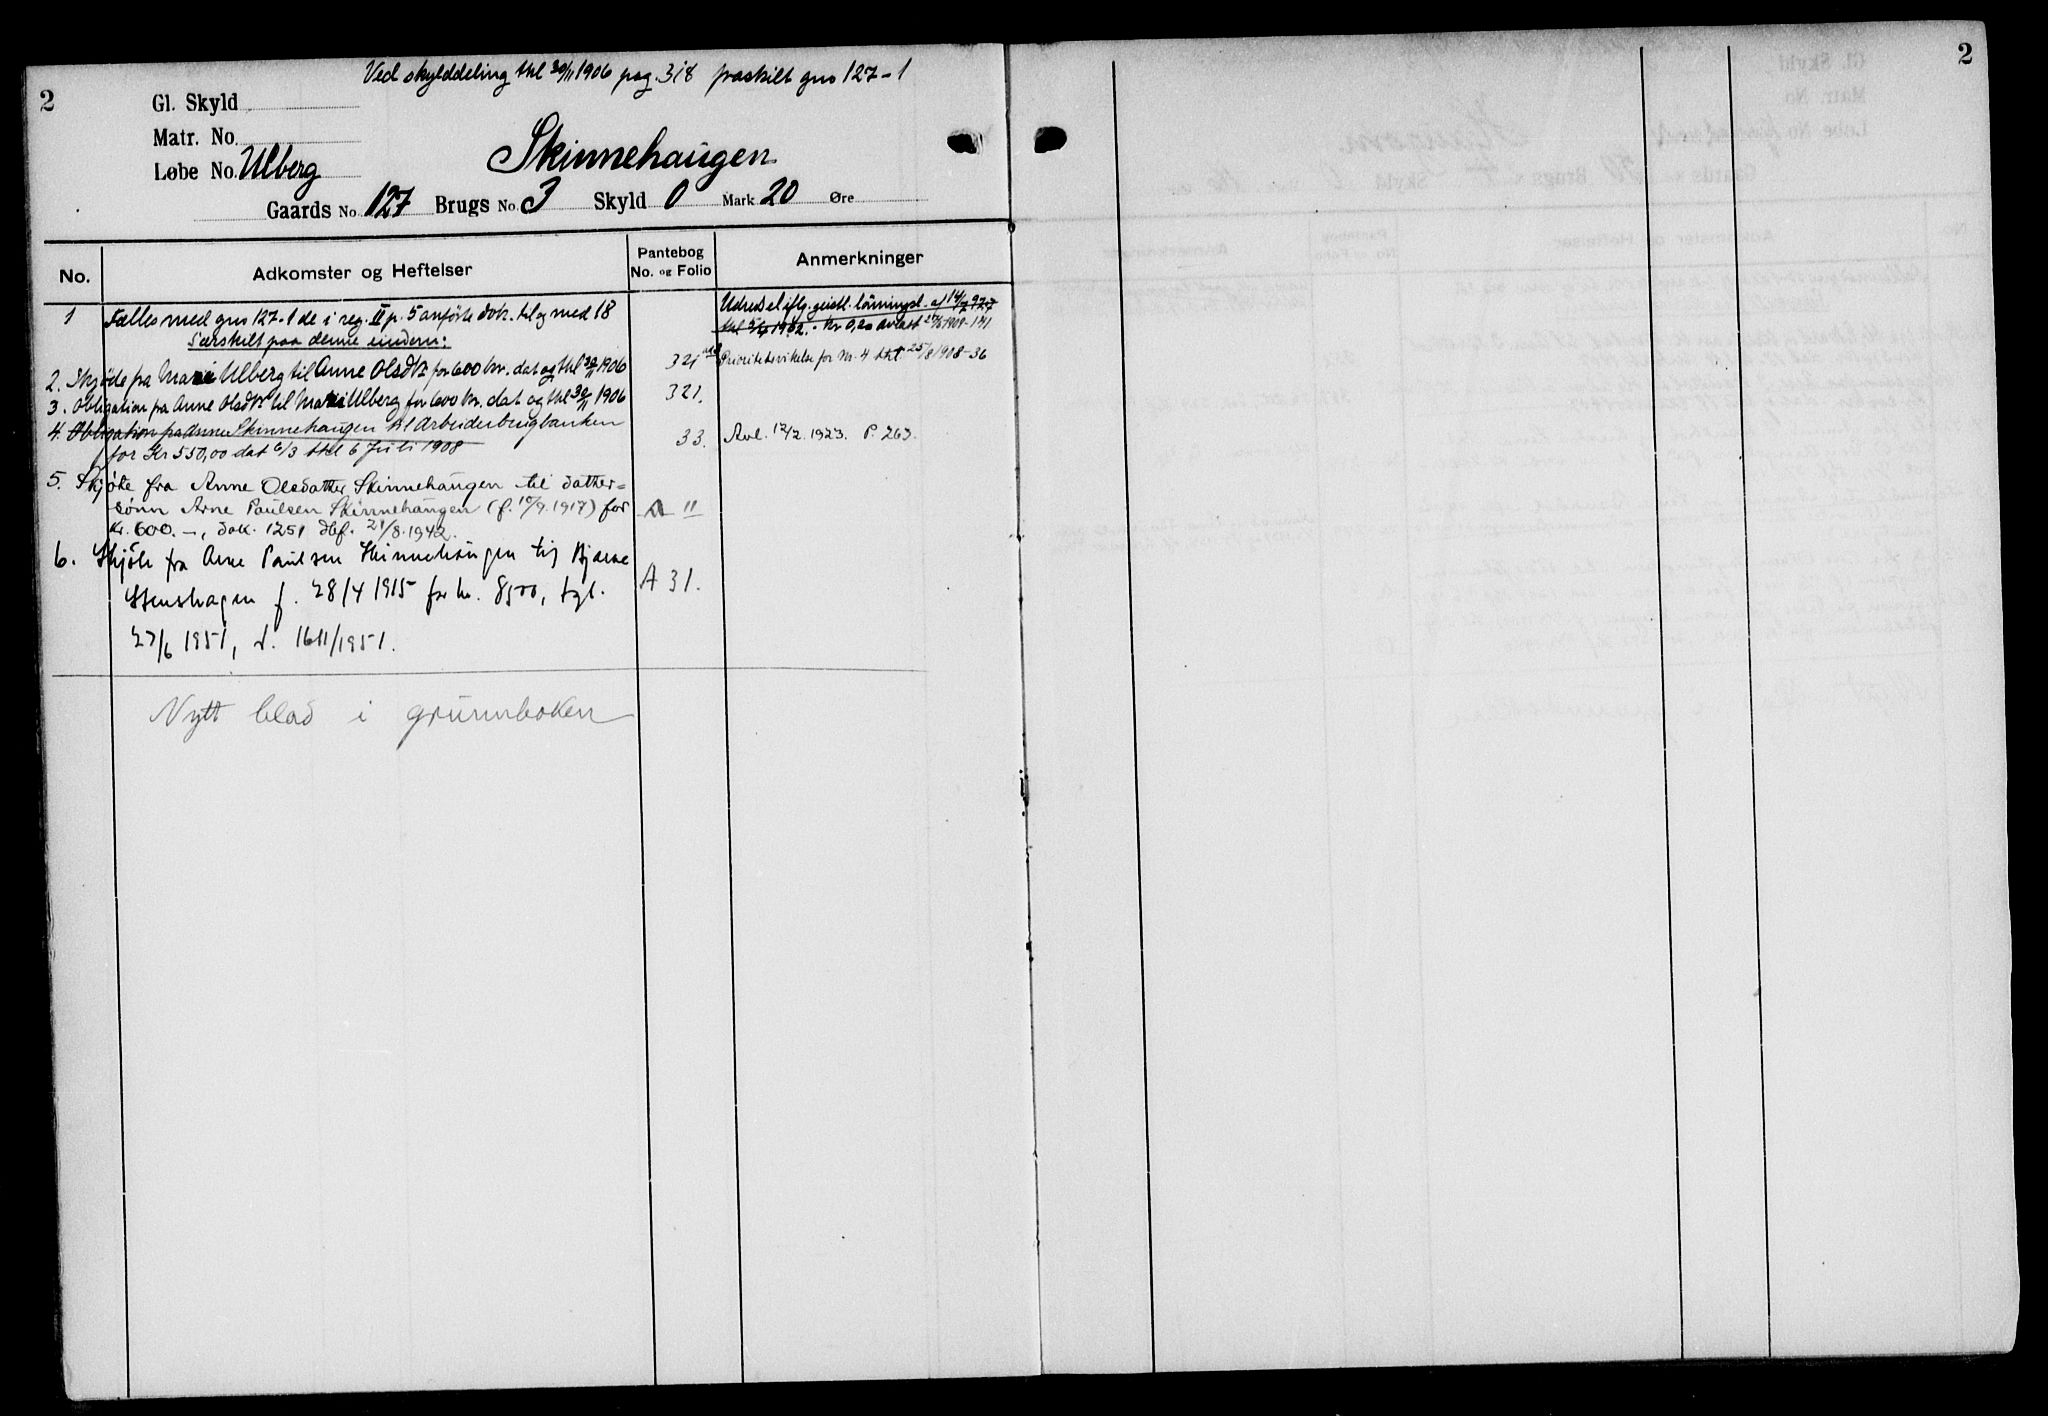 Ved skylddeling thl 30/11 1906 pag. 318 fraskilt gno 127-1
2
2
Gl. Skyld
Matr. No
Løbe No. Ulberg
Skinnehaugen
Gaards No. 127 Brugs No. 3 Skyld 0 Mark 20 Øre
No.
Adkomster og Heftelser
Pantebog
No. og Folio
Anmerkninger
1 Fælles med gno 127-1 de i reg. II p. 5 anførte dok. til og med 18
Særskilt paa denne eiendom:
Udredsel iflg. geistl.
thl 1902. Kr 0,20 avløst 1909-171
2. Skjøde fra Marie Ulberg til Anne Olsdtr for 600 kr. dat og thl 30/11 1906 321
Prioritetsvikelse for Nr. 4 thl 25/8 1908-36
3. Obligation fra Anne Olsdtr til Marie Ulberg for 600 kr. dat og thl 30/11 1906 321.
4. Obligation fra Anne Skinnehaugen til Arbeiderbrugbanken
for Kr 550,00 dat 6/3 thl 6 Juli 1908 33. Avl. 12/2. 1923. P. 263.
5. Skjøte fra Anne Olsdatter Skinnehaugen til datter-
sønn Arne Paulsen Skinnehaugen (f. 10/9.1917) for A 11
kr. 600.-, dok. 1251 dbf. 21/8.1942.
6. Skjøte fra Arne Paulsen Skinnehaugen til Bjarne
Stenshagen f. 28/4 1915 for kr. 8500, tgl. A 31.
27/6 1951, d. 1611/1951.
Nytt blad i grunnboken